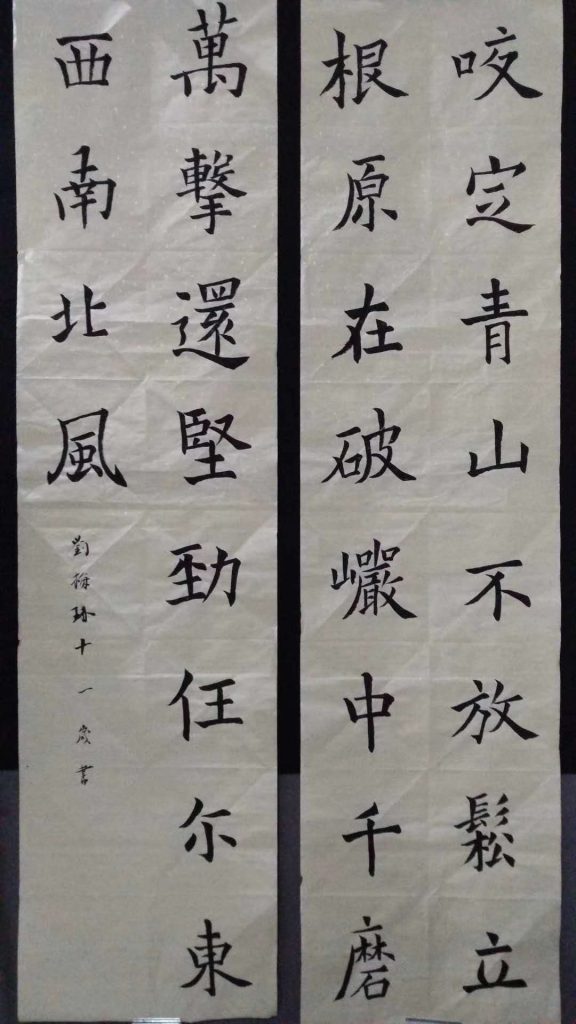 咬定青山不放鬆立
根原在破巗中千磨
萬擊還堅勁任尔東
西南北風
劉十一歲書